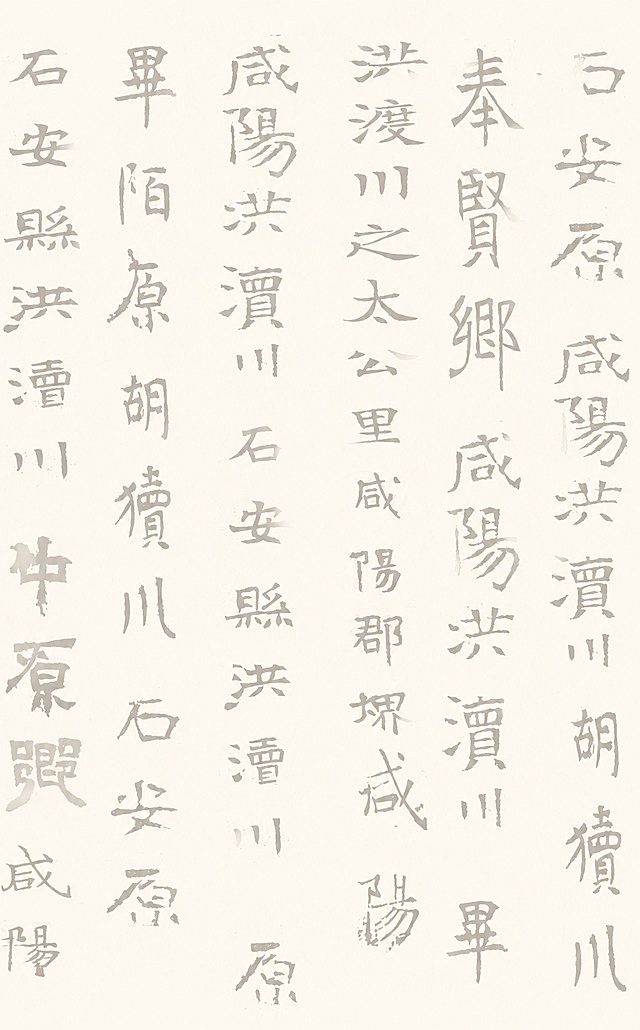 石安原 咸陽洪瀆川 胡獖川
奉賢鄉 咸陽洪瀆川 畢
洪渡川之太公里咸陽郡堺咸陽
咸陽洪瀆川 石安縣洪瀆川 原
畢陌原 胡獖川 石安原
石安縣洪瀆川 中原鄉 咸陽